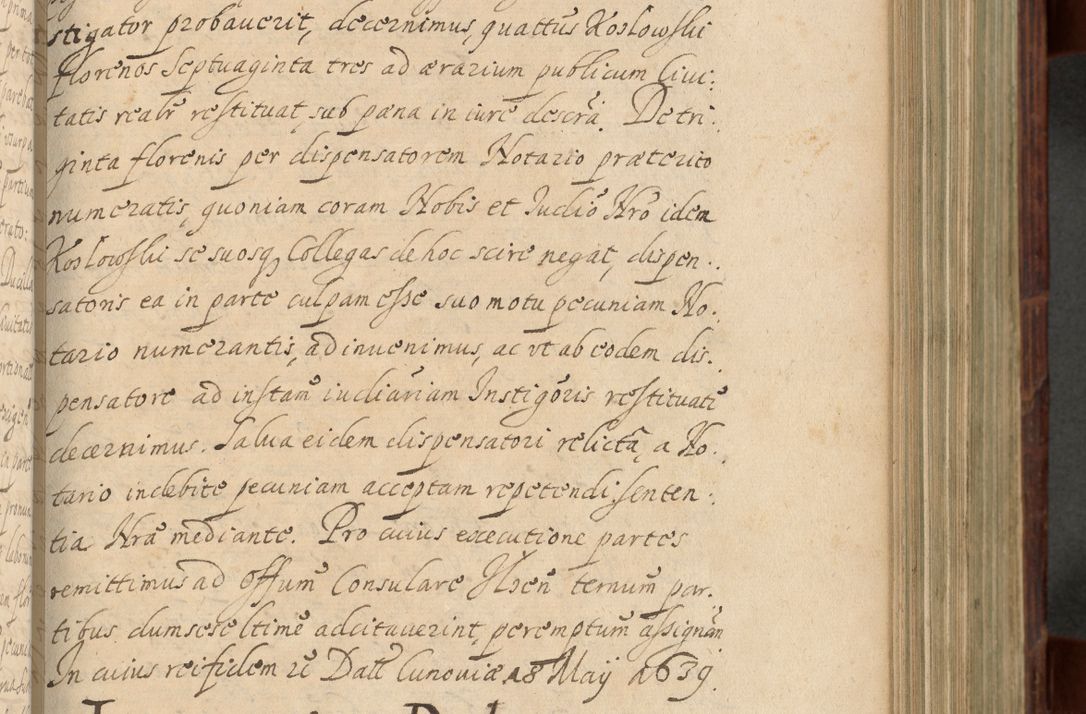 stigator probauerit, decernimus, quattus Koslowski
florenos Septuaginta tres ad ærarium publicum Ciui:
tatis realr̃ restituat, sub pœna in iure descrã. De tri:
ginta florenis per dispensatorem Notario præterito
numeratis, quoniam coram Nobis et Iudio Nrõ idem
Koslowski se suosq, Collegas de hoc scire negat, dispen:
satoris ea in parte culpam esse suo motu pecuniam No:
tario numerantis, adinuenimus, ac vt ab eodem dis:
pensatore ad instam̃ iudiariam Instigoris restituatr̃
decernimus. Salua eidem dispensatori relictã, a No:
tario indebite pecuniam acceptam repetendi, senten:
tia Nrã mediante. Pro cuius executione partes
remittimus ad Offum̃ Consulare Ilkeñ ternum̃ par:
tibus, dum se se ltime adcitauerint, peremptum̃ assignãn
In cuius rei fidem rẽ Datt̃ Cunoviæ 18 Maÿ 1639.